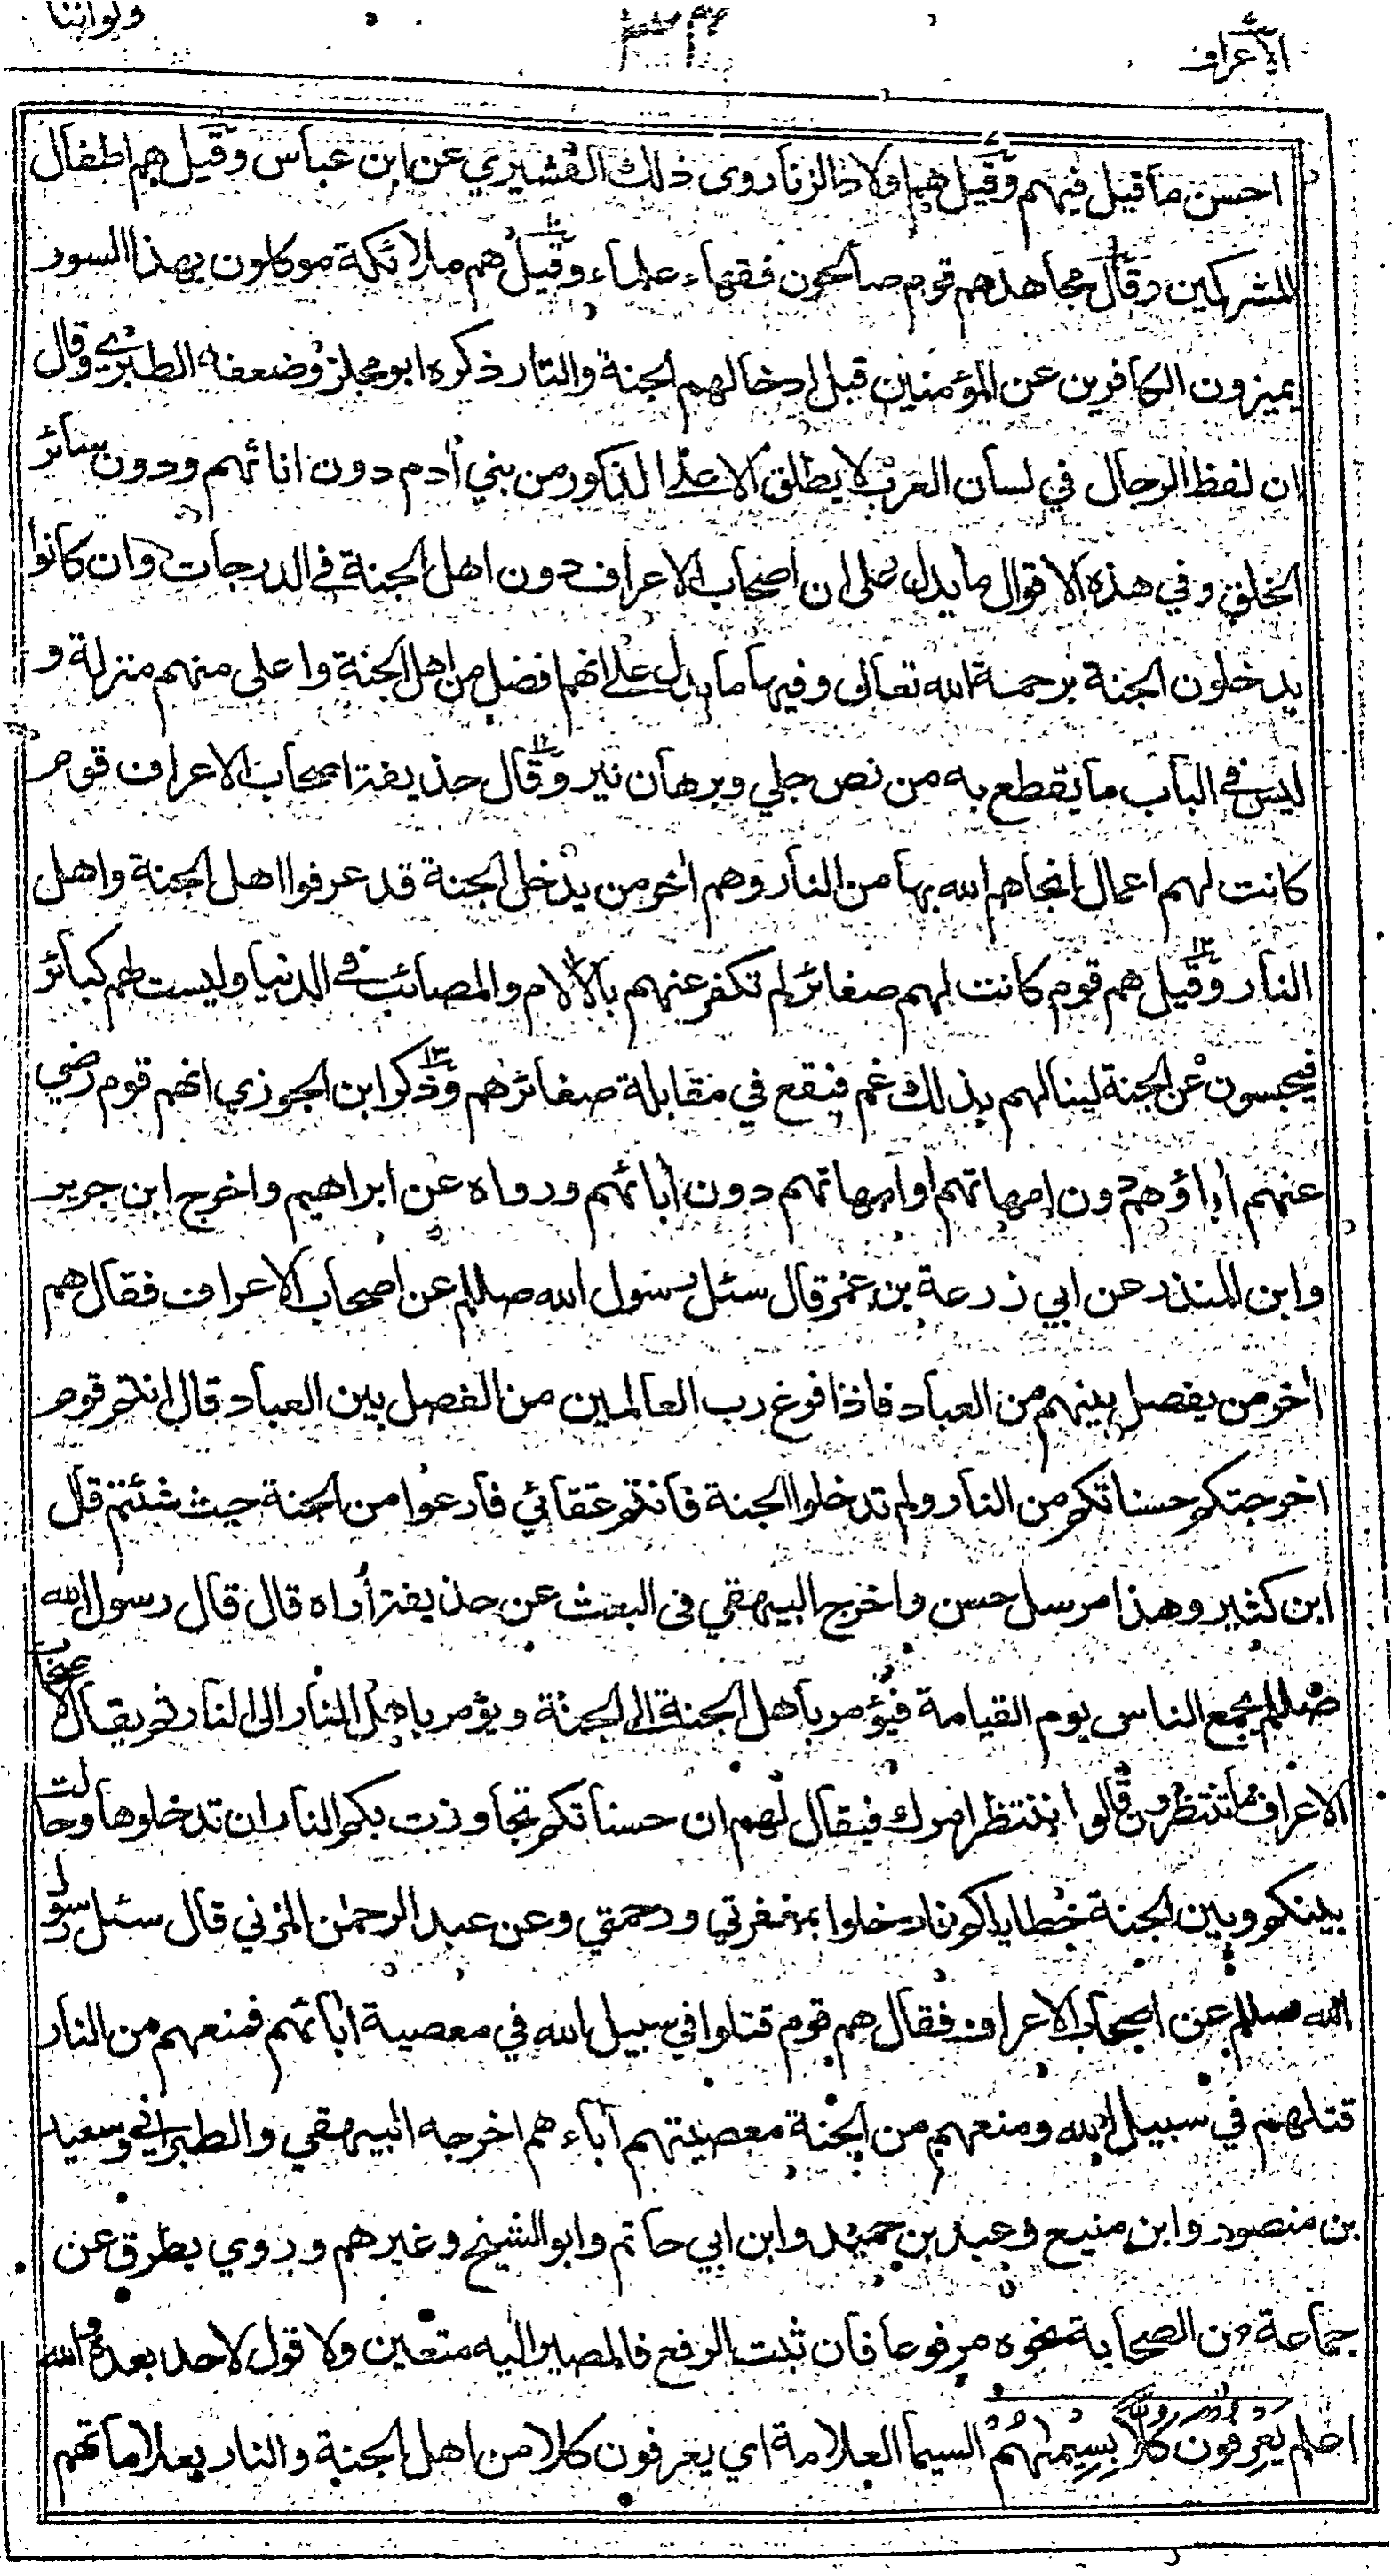 ولواننا ٣٣٤ الاعراف
احسن ما قيل فيهم وقيل هم اولاد الزنا روى ذلك القشيري عن ابن عباس وقيل هم اطفال
المشركين وقال مجاهد هم قوم صالحون فقهاء علماء وقيل هم ملائكة موكلون بهذا السور
يميزون الكافرين عن المؤمنين قبل ادخالهم الجنة والنار ذكره ابو مجلز وضعفه الطبري وقال
ان لفظ الرجال في لسان العرب لا يطلق الا على الذكور من بني آدم دون اناثهم ودون سائر
الخلق وفي هذه الاقوال ما يدل على ان اصحاب الاعراف دون اهل الجنة في الدرجات وان كانوا
يدخلون الجنة برحمة الله تعالى وفيها ما يدل على انهم افضل من اهل الجنة واعلى منهم منزلة و
ليس في الباب ما يقطع به من نص جلي وبرهان نير وقال حذيفة اصحاب الاعراف قوم
كانت لهم اعمال انجاهم الله بها من النار وهم آخر من يدخل الجنة قد عرفوا اهل الجنة واهل
النار وقيل هم قوم كانت لهم صغائر لم تكفر عنهم بالآلام والمصائب في الدنيا وليست لهم كبائر
فيحبسون عن الجنة لينالهم بذلك غم فيقع في مقابلة صغائرهم وذكر ابن الجوزي انهم قوم رضي
عنهم آباؤهم دون امهاتهم او امهاتهم دون آبائهم ورواه عن ابراهيم واخرج ابن جرير
وابن المنذر عن ابي زرعة بن عمر قال سئل رسول الله صللم عن اصحاب الاعراف فقال هم
آخر من يفصل بينهم من العباد فاذا فرغ رب العالمين من الفصل بين العباد قال انتم قوم
اخرجتكم حسناتكم من النار ولم تدخلوا الجنة فانتم عتقائي فارعوا من الجنة حيث شئتم قال
ابن كثير وهذا مرسل حسن واخرج البيهقي في البعث عن حذيفة أراه قال قال رسول الله
صللم يجمع الناس يوم القيامة فيؤمر باهل الجنة الى الجنة ويؤمر باهل النار الى النار ثم يقال لاصحاب
الاعراف ما تنتظرون قالوا ننتظر امرك فيقال لهم ان حسناتكم تجاوزت بكم النار ان تدخلوها وحالت
بينكم وبين الجنة خطاياكم فادخلوا بمغفرتي ورحمتي وعن عبد الرحمن المزني قال سئل رسول
الله صللم عن اصحاب الاعراف فقال هم قوم قتلوا في سبيل الله في معصية آبائهم فمنعهم من النار
قتلهم في سبيل الله ومنعهم من الجنة معصيتهم آباءهم اخرجه البيهقي والطبراني وسعيد
بن منصور وابن منيع وعبد بن حميد وابن ابي حاتم وابو الشيخ وغيرهم وروي بطرق عن
جماعة من الصحابة نحوه مرفوعا فان ثبت الرفع فالمصير اليه متعين ولا قول لاحد بعده والله
اعلم يَعْرِفُونَ كُلًّا بِسِيْمٰىهُمْ السيما العلامة اي يعرفون كلا من اهل الجنة والنار بعلاماتهم